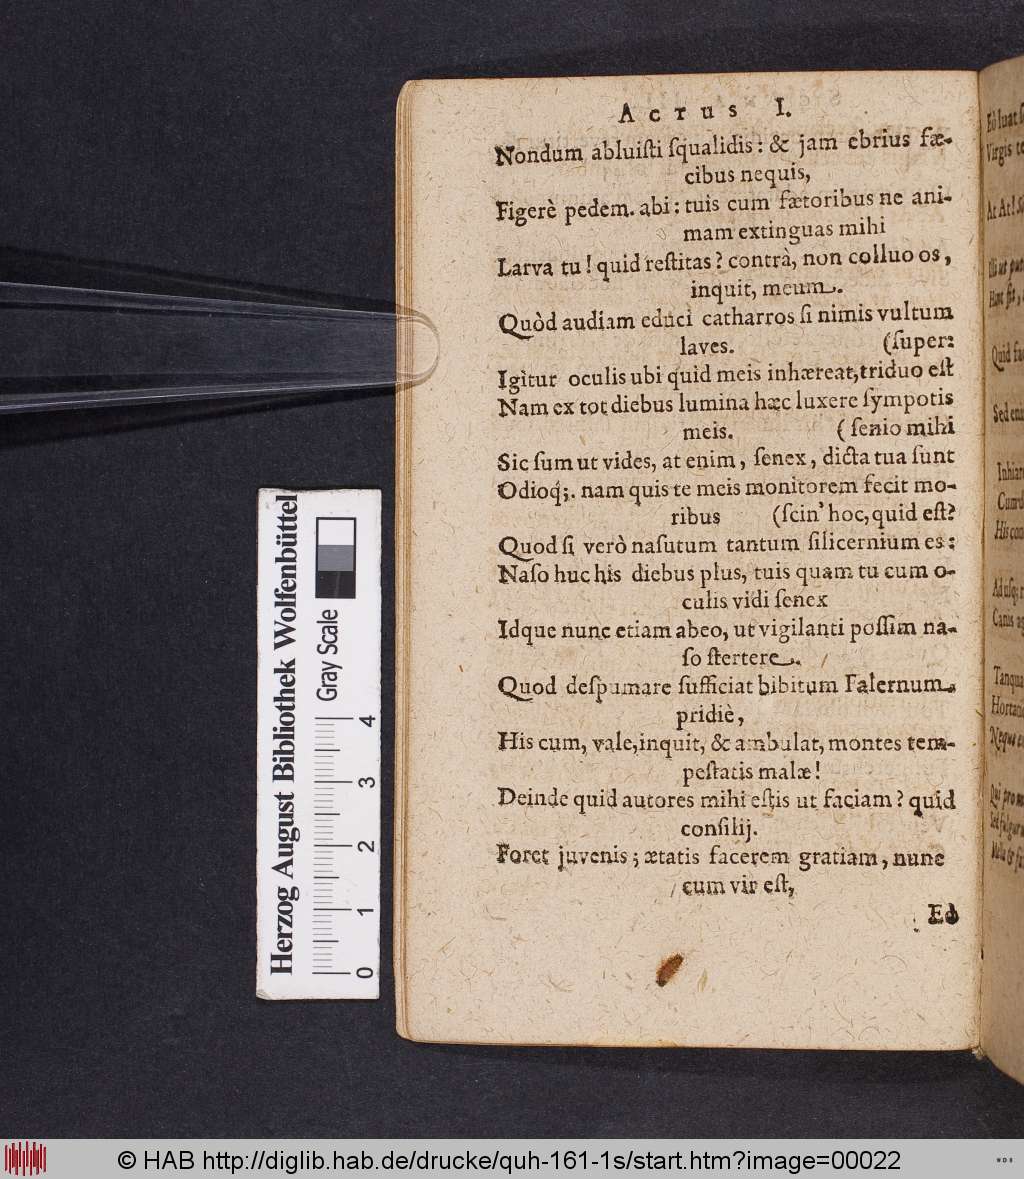 Actus I.
Nondum abluiſti ſqualidis: & jam ebrius fæ-
cibus nequis,
Figerè pedem. abi: tuis cum fætoribus ne ani-
mam extinguas mihi
Larva tu! quid reſtitas? contrà, non colluo os,
inquit, meum.
Quòd audiam educì catharros ſi nimis vultum
laves. (ſuper:
Igìtur oculis ubi quid meis inhæreat, triduo eſt
Nam ex tot diebus lumina hæc luxere ſympotis
meis. (ſenio mihi
Sic ſum ut vides, at enim, ſenex, dicta tua ſunt
Odioq́;. nam quis te meis monitorem fecit mo-
ribus (ſcin' hoc, quid eſt?
Quod ſi verò naſutum tantum ſilicernium es:
Naſo huc his diebus plus, tuis quam tu cum o-
culis vidi ſenex
Idque nunc etiam abeo, ut vigilanti poſſim na-
ſo ſtertere.
Quod deſpumare ſufficiat bibitum Falernum,
pridiè,
His cum, vale, inquit, & ambulat, montes tem-
peſtatis malæ!
Deinde quid autores mihi eſtis ut faciam? quid
conſilij.
Foret juvenis; ætatis facerem gratiam, nunc
cum vir eſt,
Eò
Eò luat
Virgis
At At!
Quid
Sed
His
Canis
Herzog August Bibliothek Wolfenbüttel
Gray Scale
0 1 2 3 4
© HAB http://diglib.hab.de/drucke/quh-161-1s/start.htm?image=00022